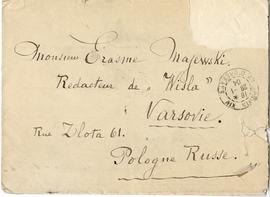 Monsieur Erasme Majewski.
Rédacteur de „Wisla"
Varsovie
Rue Zlota 61.
Pologne Russe.